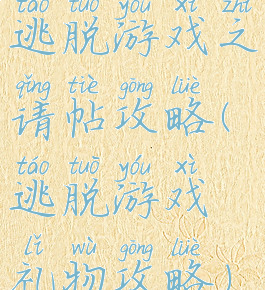 táo tuō yóu xì zhī
逃脱游戏之
qǐng tiè gōng lüè
请帖攻略(
táo tuō yóu xì
逃脱游戏
lǐ wù gōng lüè
礼物攻略)